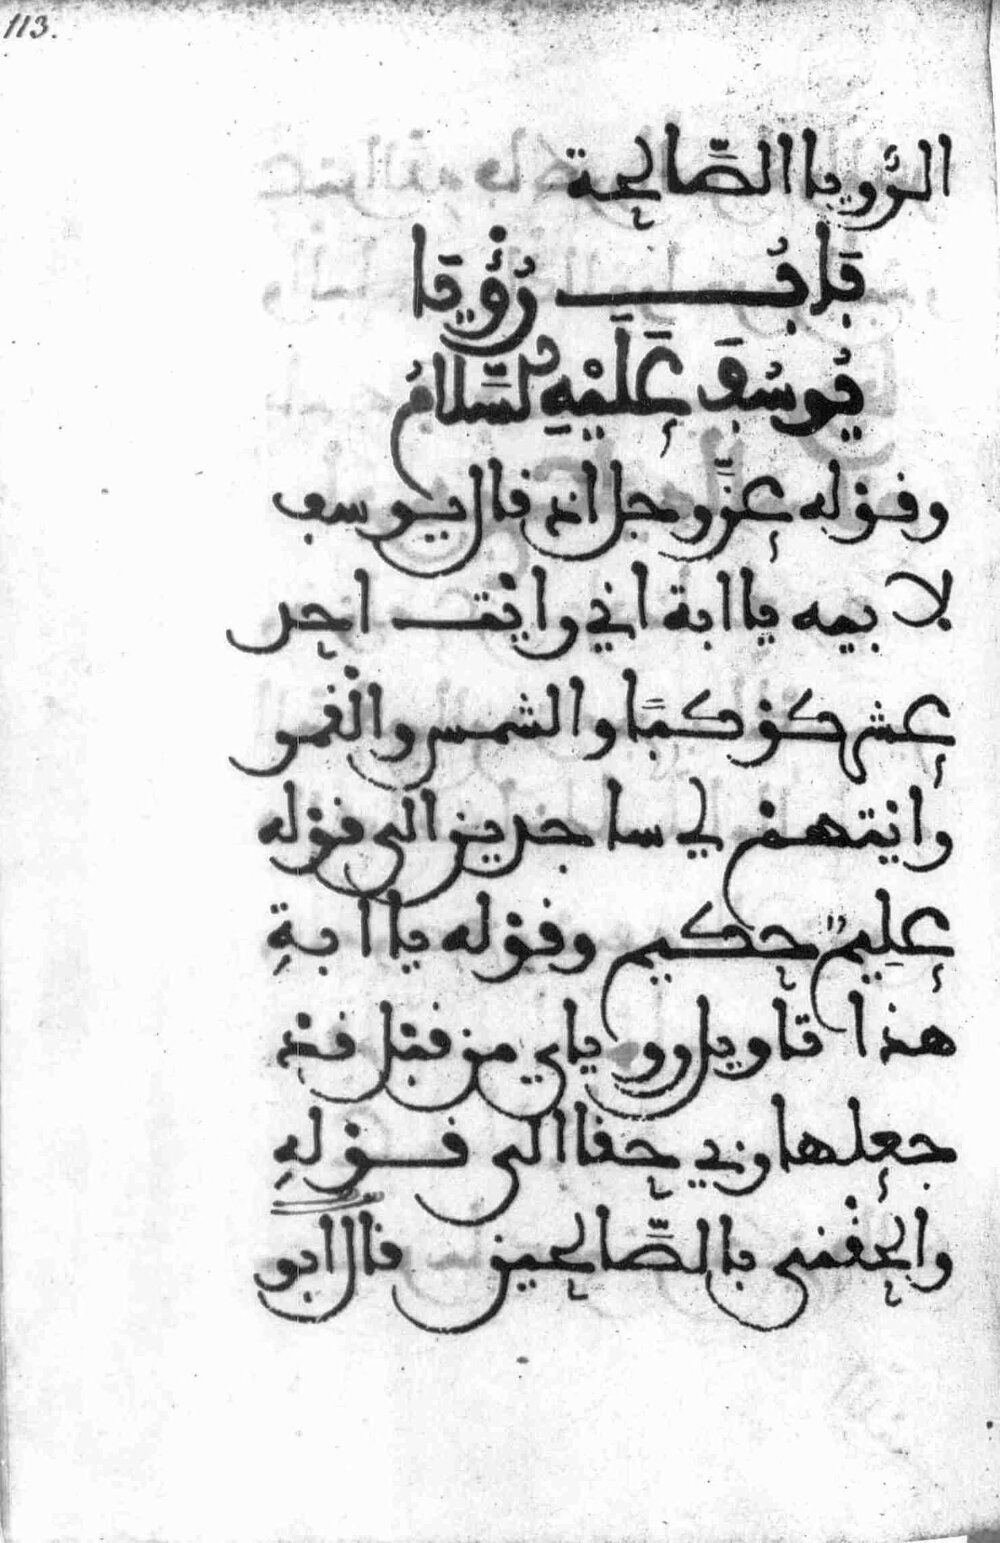 113.
الرؤيا الصالحة
باب رُؤْيَا
يُوسُفَ عَلَيْهِ السَّلَامُ
وقوله عزّ وجل اذ قال يوسف
لابيه ياابة اني رايت احد
عشر كوكبًا والشمس والقمر
رايتهم لي ساجدين الى قوله
عليمٌ حكيم وقوله ياابةِ
هذا تاويل روياي من قبل قد
جعلها ربي حقا الى قولهِ
والحقني بالصَّالحين قال ابو